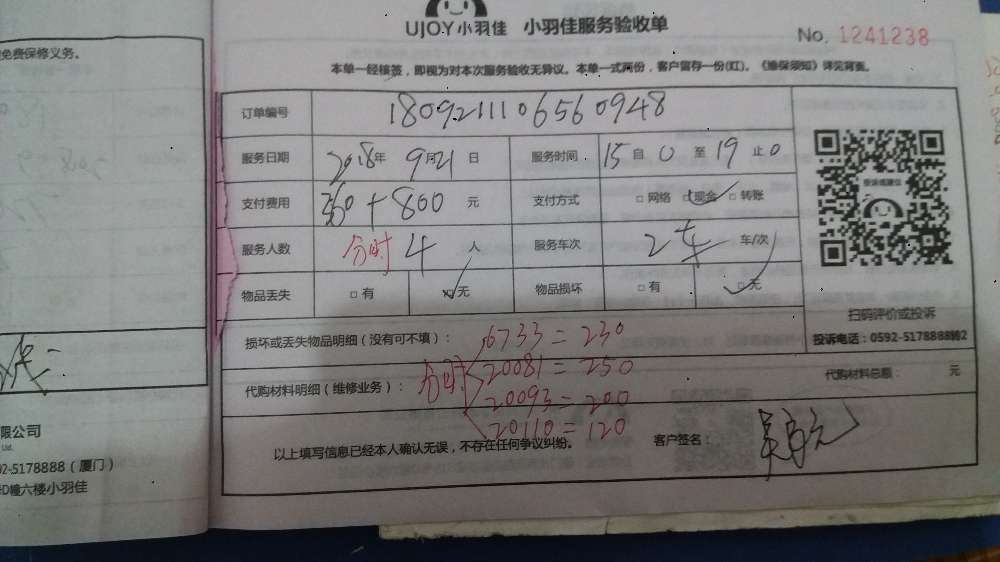 免费保修义务。
限公司
Ltd.
92-5178888（厦门）
D幢六楼小羽佳
UJOY小羽佳 小羽佳服务验收单
No. 1241238
本单一经核签，即视为对本次服务验收无异议。本单一式两份，客户留存一份(红)。《维保须知》详见背面。
订单编号 1809211106560948
服务日期 2018年 9月21日 服务时间 15自0至19止0
支付费用 +800 元 支付方式 □网络 □现金 □转账
服务人数 分时 4 人 服务车次 2车 车/次
物品丢失 □有 □无 物品损坏 □有 □无
投诉或建议
扫码评价或投诉
投诉电话：0592-5178888转2
损坏或丢失物品明细（没有可不填）： 6733=230
代购材料明细（维修业务）： 分时 20081=250
20093=200
20110=120
代购材料总额： 元
以上填写信息已经本人确认无误，不存在任何争议纠纷。 客户签名：